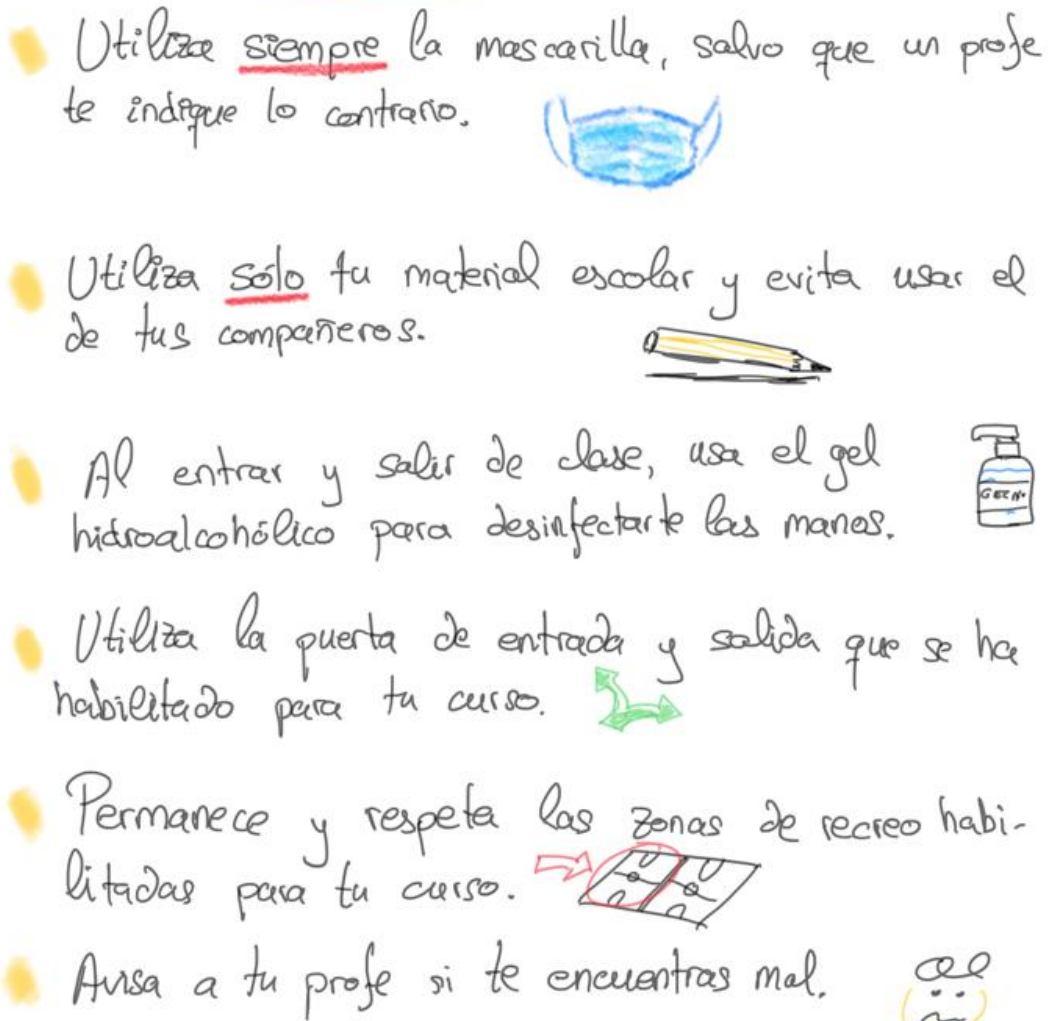 Utiliza siempre la mascarilla, salvo que un profe
te indique lo contrario.
Utiliza sólo tu material escolar y evita usar el
de tus compañeros.
Al entrar y salir de clase, usa el gel
hidroalcohólico para desinfectarte las manos.
Utiliza la puerta de entrada y salida que se ha
habilitado para tu curso.
Permanece y respeta las zonas de recreo habi-
litadas para tu curso.
Avisa a tu profe si te encuentras mal.